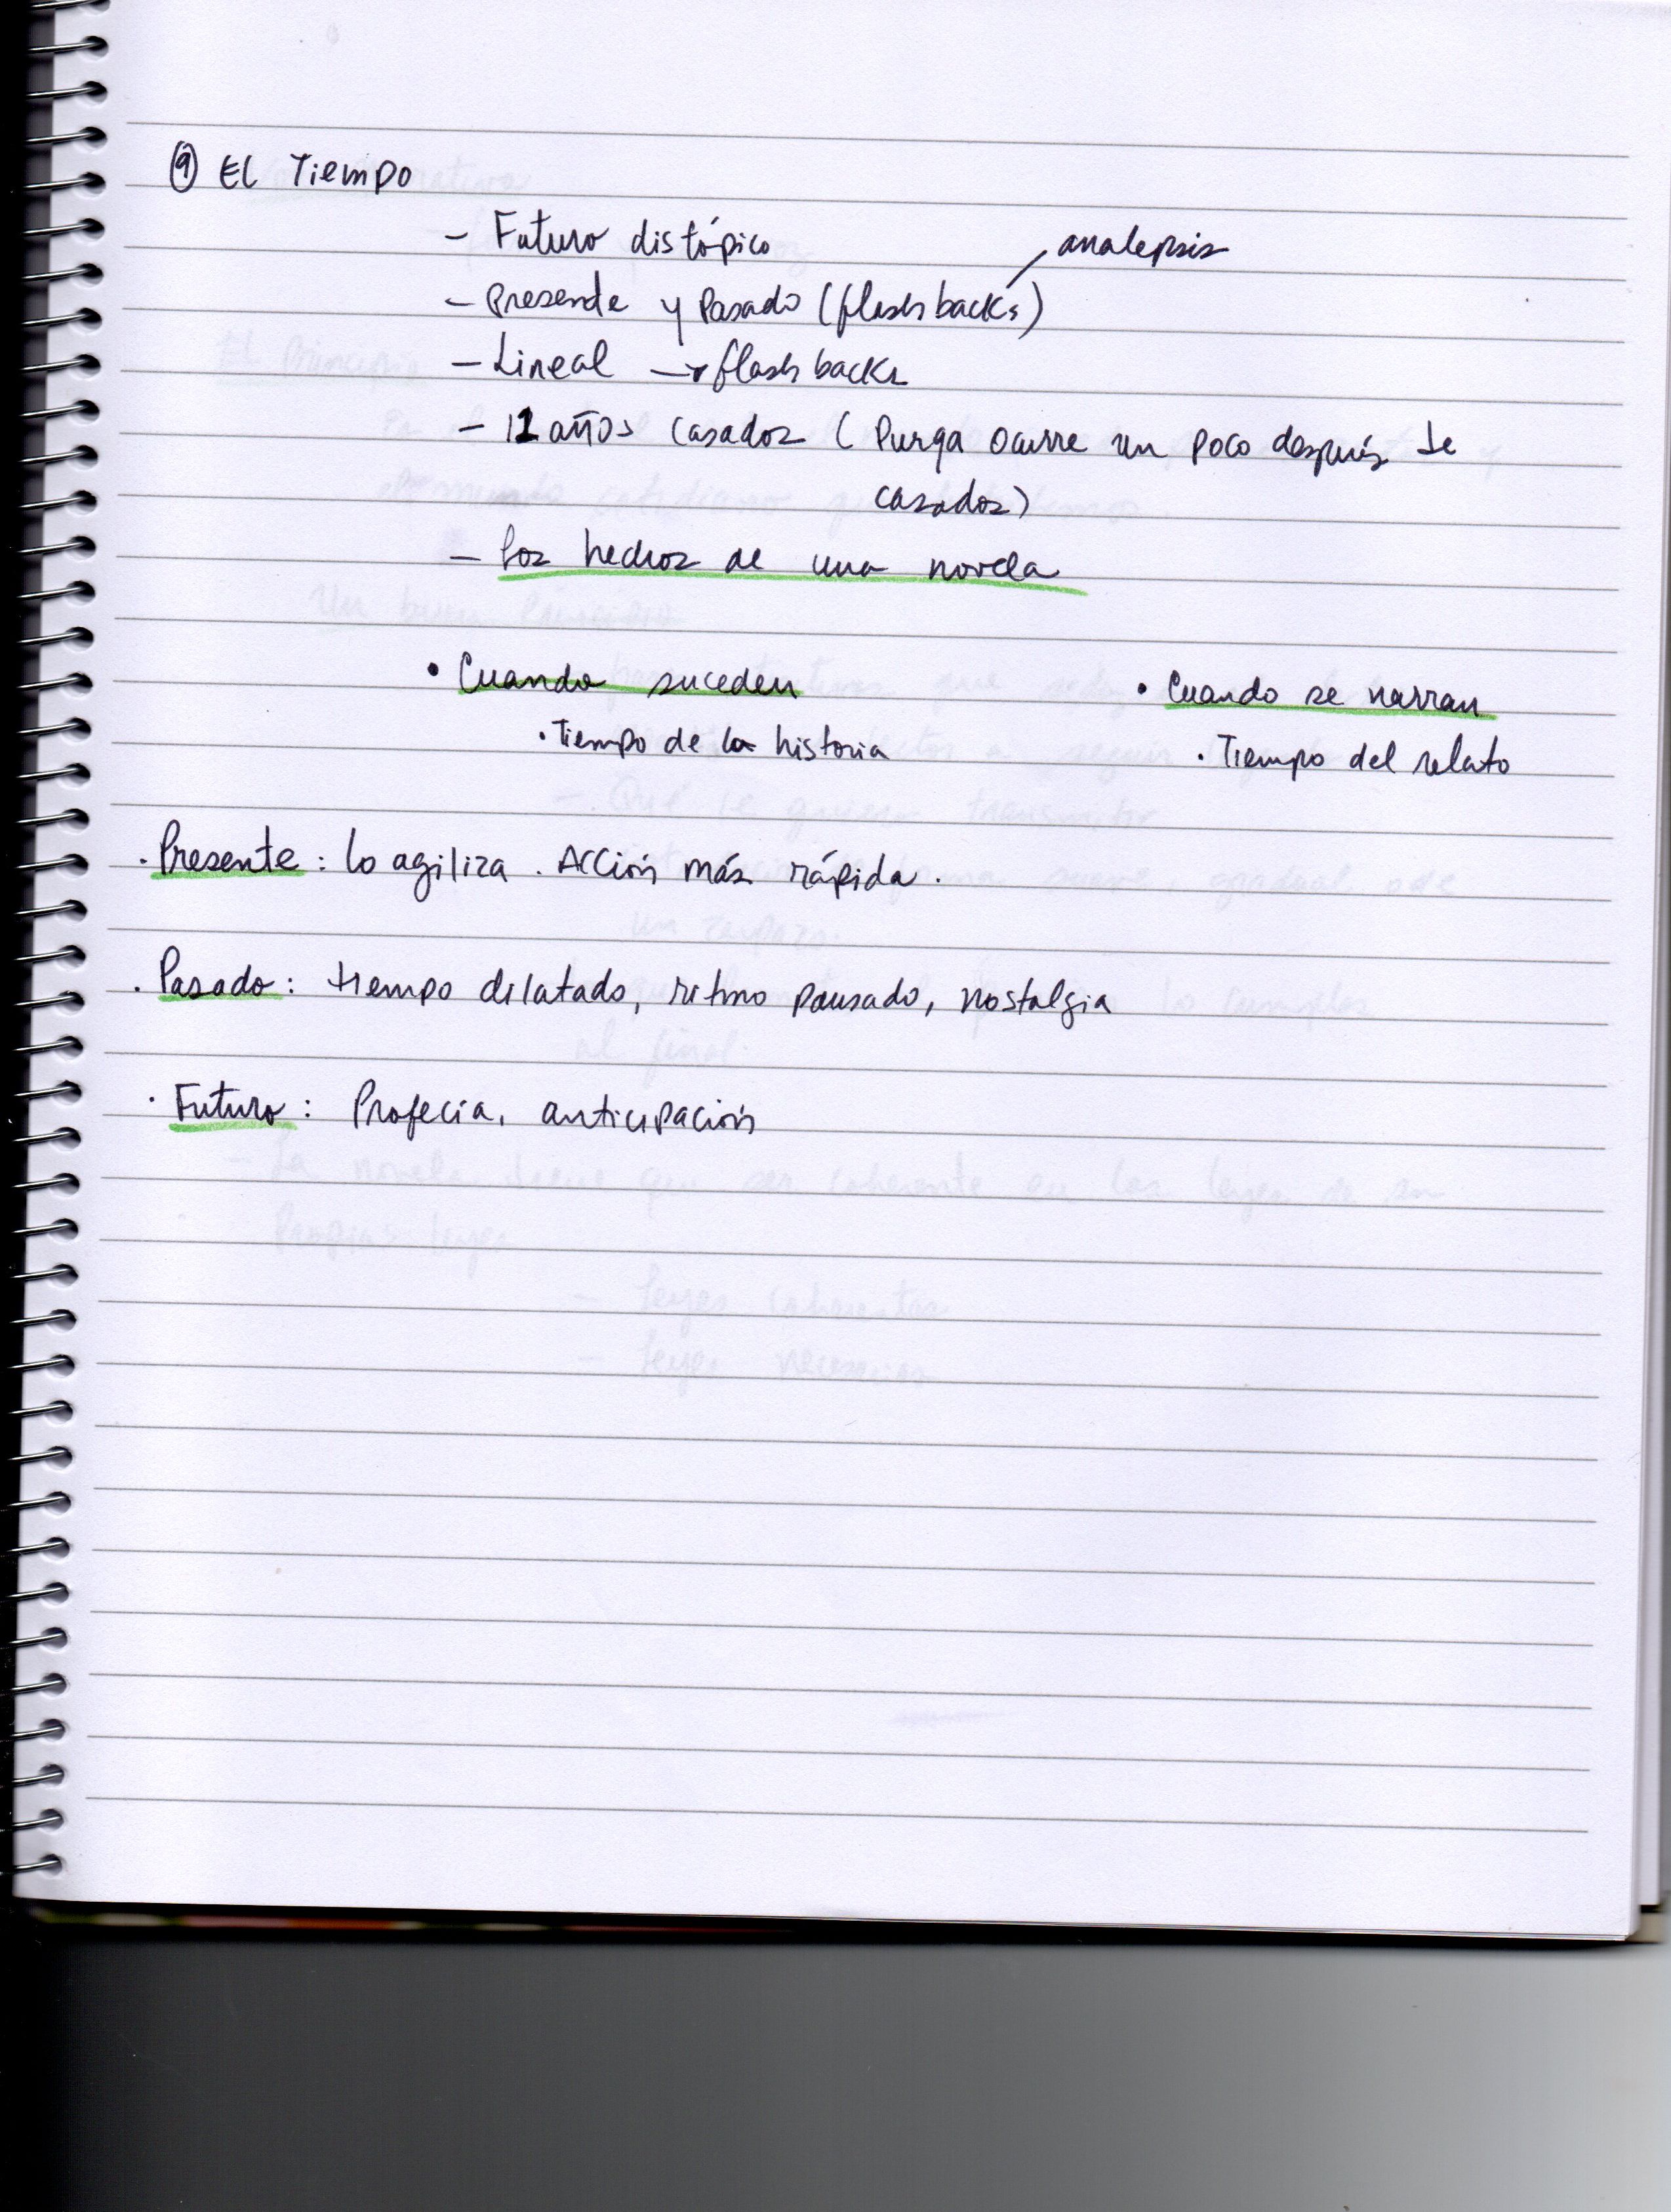 ⑨ El Tiempo
- Futuro distópico
analepsis
- Presente y Pasado (flashbacks)
- Lineal → flashbacks
- 11 años casados (Purga ocurre un poco después de
casados)
- Los hechos de una novela
• Cuando suceden • Cuando se narran
• Tiempo de la historia • Tiempo del relato
. Presente: lo agiliza. Acción más rápida.
. Pasado: tiempo dilatado, ritmo pausado, nostalgia
. Futuro: Profecía, anticipación